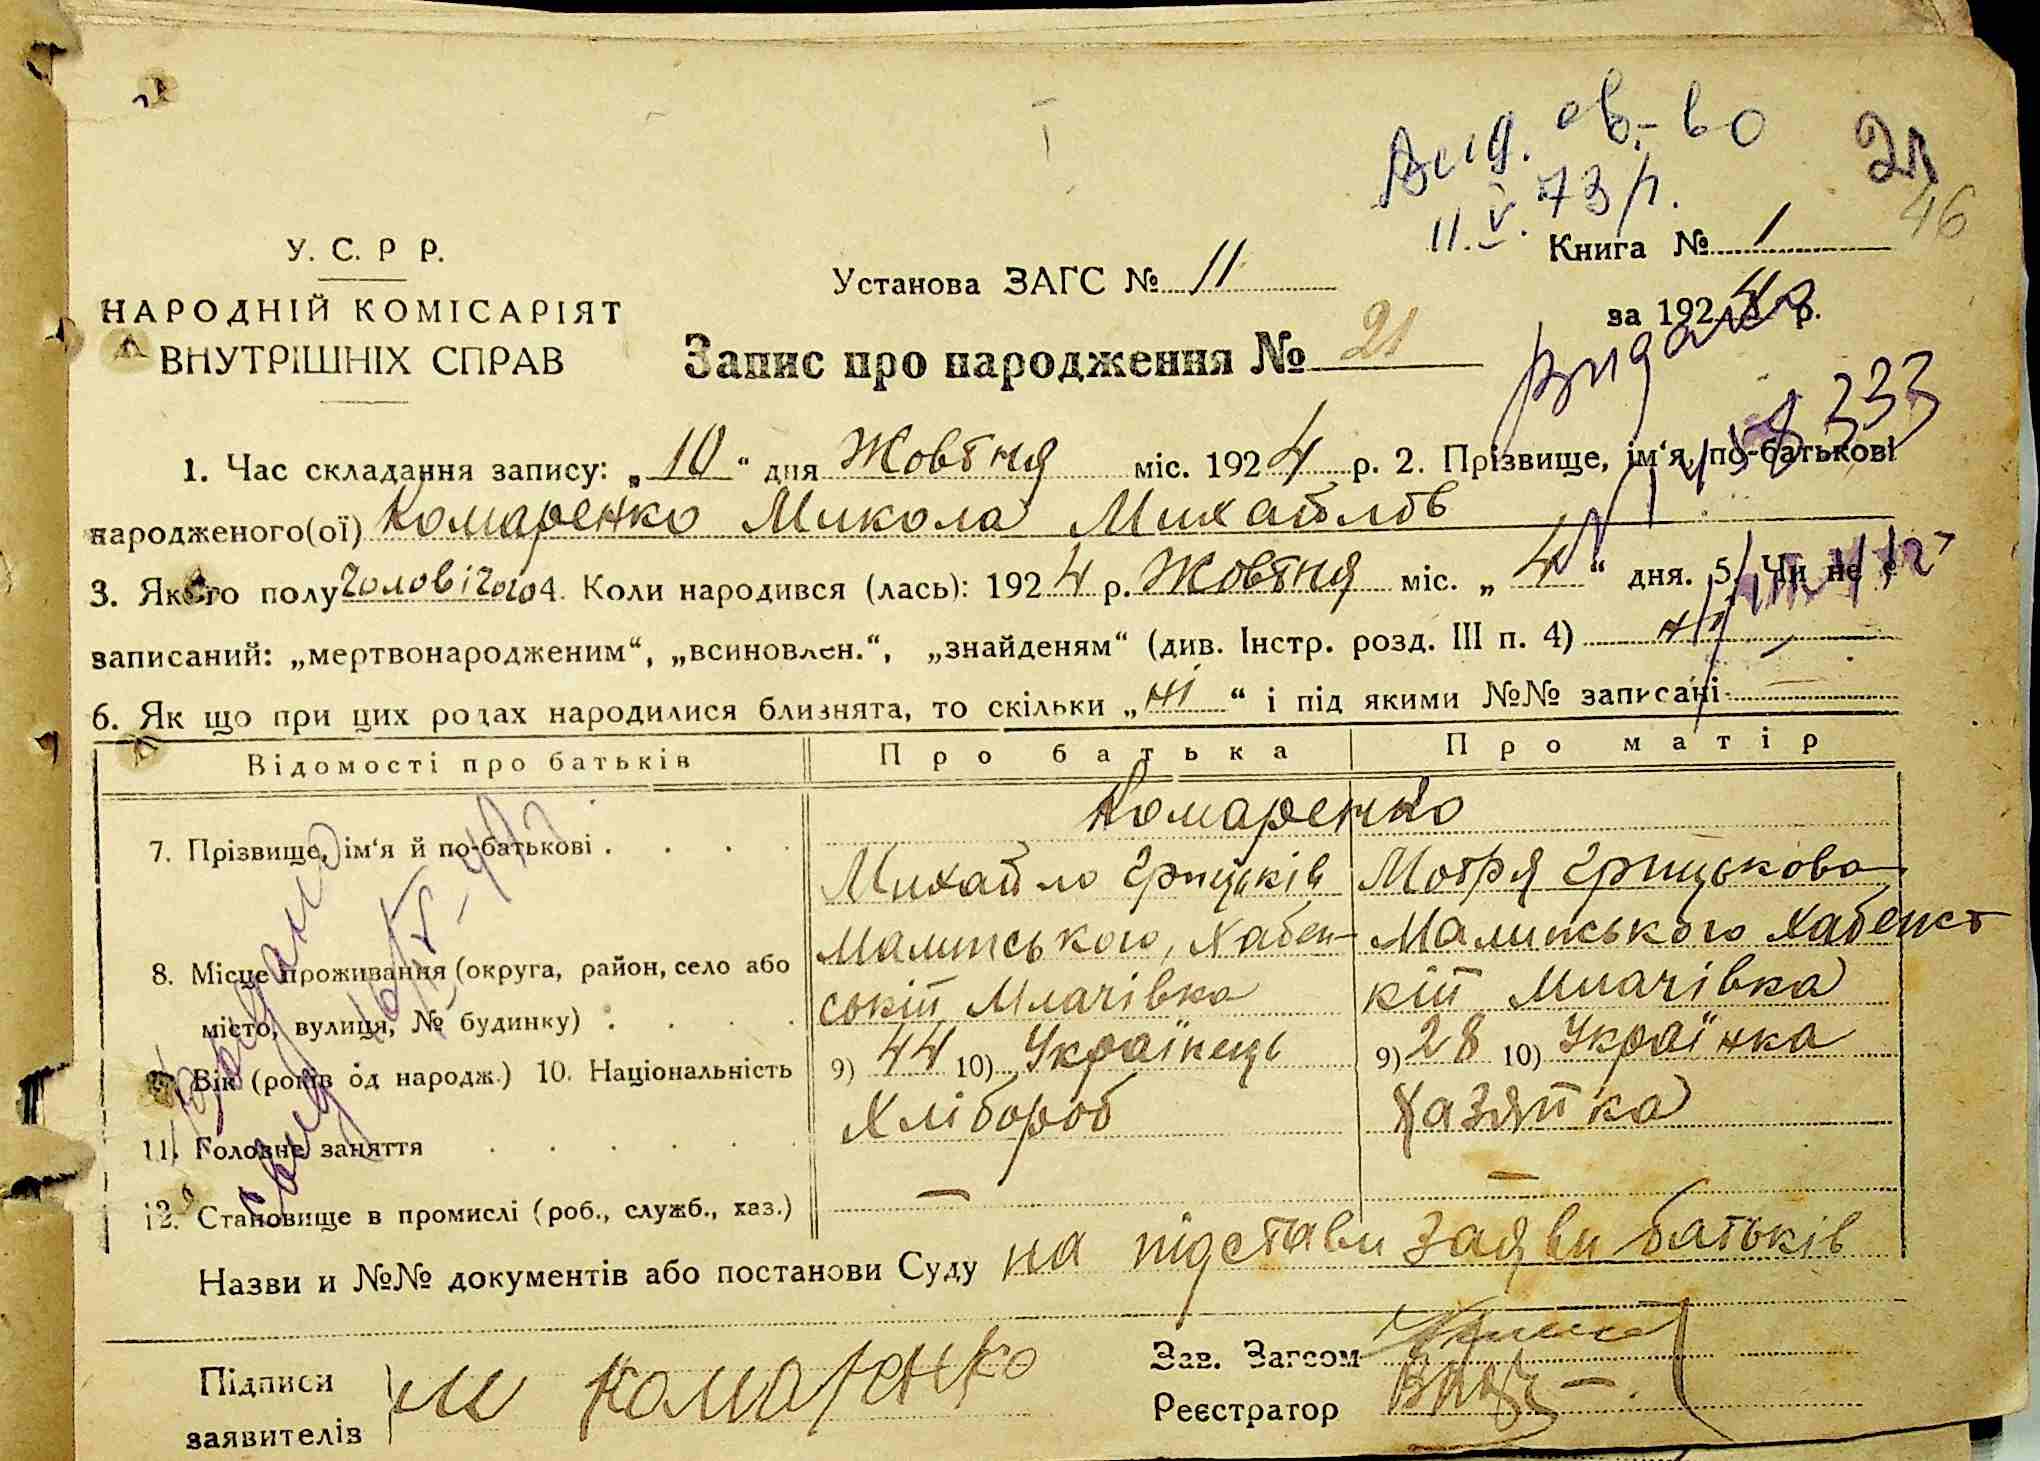 Вид. св-во 21
11.V.73 р. 46
У. С. Р Р.
Установа ЗАГС № 11 Книга № 1
НАРОДНІЙ КОМІСАРІЯТ за 1924 р.
ВНУТРІШНІХ СПРАВ
Запис про народження № 21
333
1. Час складання запису: „10“ дня Жовтня міс. 1924 р. 2. Прізвище, ім‘я, по-батькові
народженого(ої) Комаренко Микола Михайлов
3. Якого полу чоловічого 4. Коли народився (лась): 1924 р. Жовтня міс. „4“ дня. 5. Чи не є
записаний: „мертвонародженим“, „всиновлен.“, „знайденям“ (див. Інстр. розд. III п. 4) ні
6. Як що при цих родах народилися близнята, то скільки „ні“ і під якими №№ записані
Відомості про батьків Про батька Про матір
Комаренко
7. Прізвище, ім‘я й по-батькові
Михайло Грицьків Мотря Грицькова
Малинського, Хабен- Малинського Хабенсь
8. Місце проживання (округа, район, село або
ській Млачівка кій Млачівка
місто, вулиця, № будинку)
9. Вік (років од народж.) 10. Національність 9) 44 10) Українець 9) 28 10) Українка
11. Головне заняття Хлібороб Хазяйка
12. Становище в промислі (роб., служб., хаз.) — —
Назви и №№ документів або постанови Суду на підстави заяви батьків
Підписи Зав. Загсом
заявителів М Комаренко Реєстратор